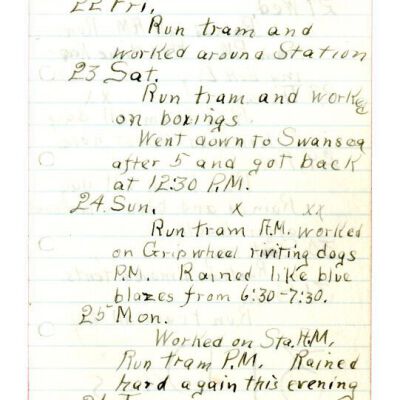 22 Fri.
Run tram and
worked around Station
23 Sat.
Run tram and worked
on boxings
Went down to Swansea
after 5 and got back
at 12:30 P.M.
24 Sun. x xx
Run tram A.M. worked
on Grip wheel riviting dogs
P.M. Rained like blue
blazes from 6:30-7:30.
25 Mon.
Worked on Sta. A.M.
Run tram P.M. Rained
hard again this evening